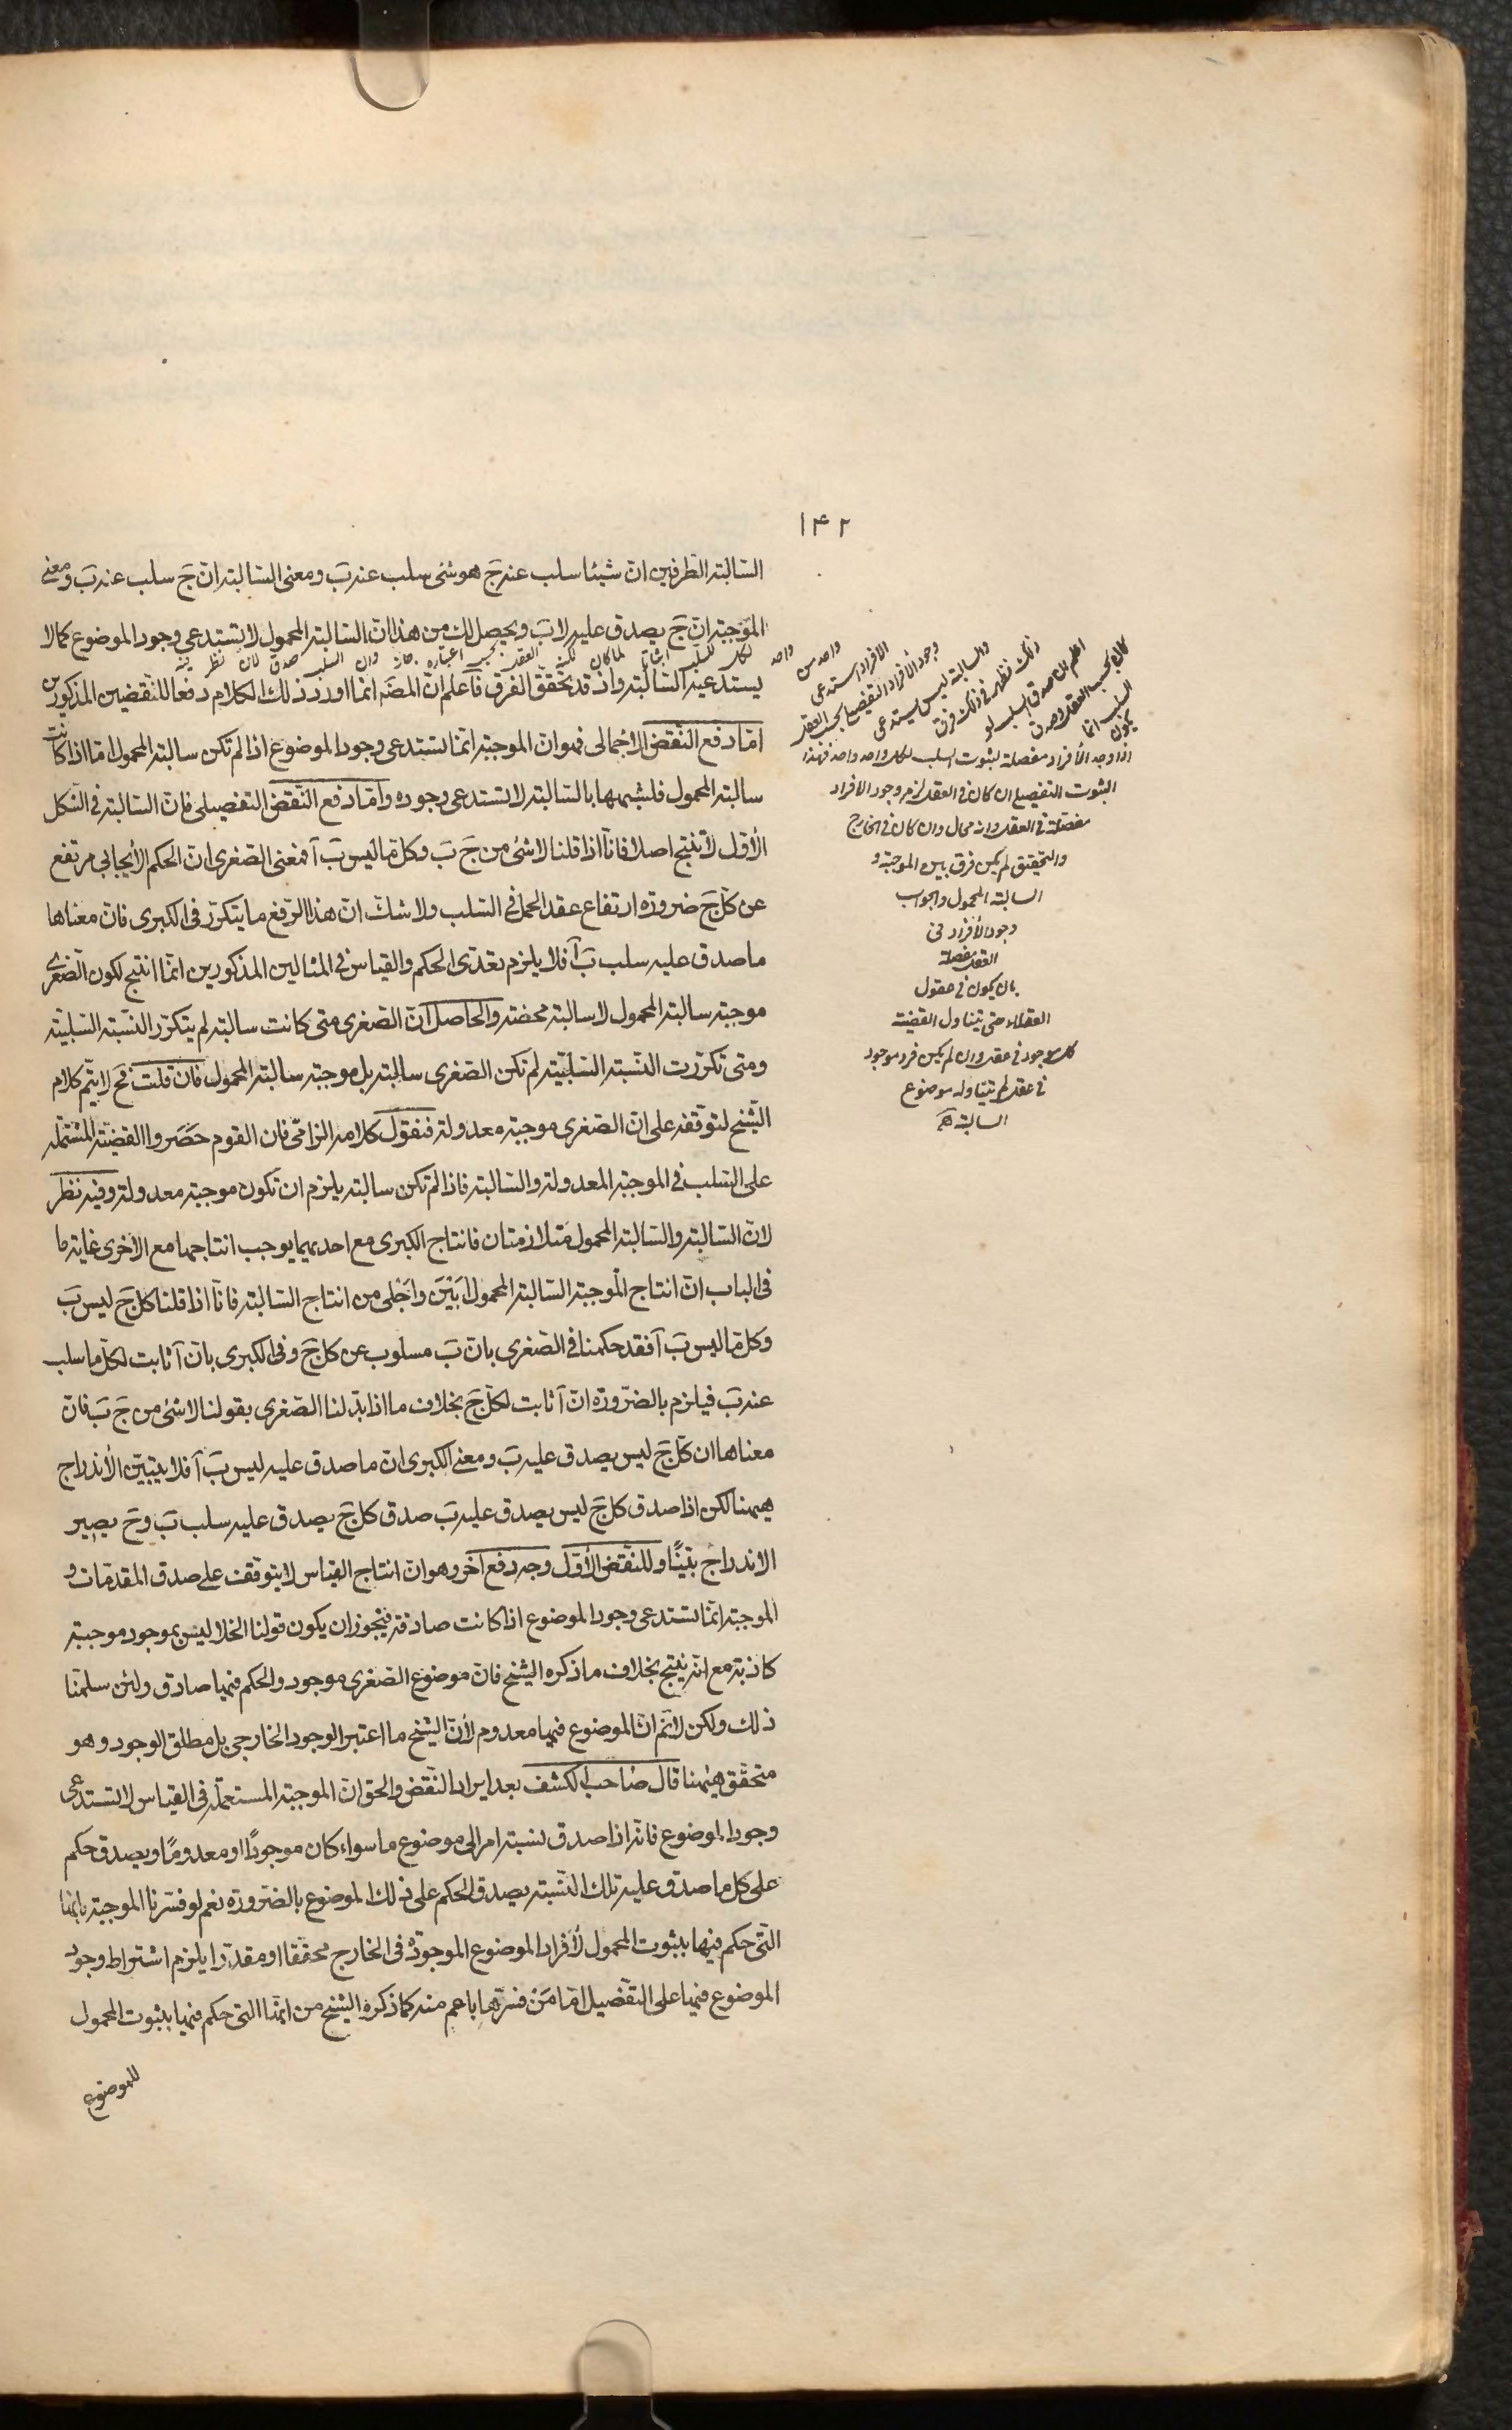 ١٤٢
السالبة الطرفين ان شيئا سلب عنه جَ هو شئ سلب عنه بَ ومعنى السالبة ان جَ سلب عنه بَ ومعنى
الموجبة ان جَ يصدق عليه لا بَ ويحصل لك من هذا ان السالبة المحمول لا تستدعى وجود الموضوع كما لا
يستدعيه السالبة واذ قد تحقّق الفرق فاعلم ان المصَ انما اورد ذلك الكلام دفعا للنقضين المذكورين
امّا دفع النقض الاجمالى فهو ان الموجبة انما تستدعى وجود الموضوع اذا لم تكن سالبة المحمول امّا اذا كانت
سالبة المحمول فلشبهها بالسالبة لا تستدعى وجوده وامّا دفع النقض التفصيلى فلان السالبة فى الشكل
الأوّل لا تنتج اصلا فانّا اذا قلنا لا شئ من جَ بَ وكل مّا ليس بَ آ فمعنى الصغرى ان الحكم الأيجابى مرتفع
عن كل جَ ضرورة ارتفاع عقد الحمل فى السّلب ولا شك انّ هذا الرّفع ما يتكرّر فى الكبرى فان معناها
ما صدق عليه سلب بَ آ فلا يلزم تعدّى الحكم والقياس فى المثالين المذكورين انّما انتج لكون الصّغرى
موجبة سالبة المحمول لا سالبة محضة والحاصل انّ الصّغرى متى كانت سالبة لم يتكرّر النّسبة السّلبيّة
ومتى تكرّرت النّسبة السّلبيّة لم تكن الصّغرى سالبة بل موجبة سالبة المحمول فان قلت فحَ لا يتمّ كلام
الشّيخ لتوقّفه على انّ الصّغرى موجبة معدولة فنقول كلامه الزامىّ فان القوم حَصَروا القضيّة المشتملة
على السّلب فى الموجبة المعدولة والسّالبة فاذا لم تكن سالبة يلزم ان تكون موجبة معدولة وفيه نظر
لانّ السّالبة والسّالبة المحمول متلازمتان فانتاج الكبرى مع احديهما يوجب انتاجها مع الأخرى غاية ما
فى الباب انّ انتاج الموجبة السّالبة المحمول أبْيَن وأجْلى من انتاج السّالبة فانّا اذا قلنا كل جَ ليس بَ
وكل مّا ليس بَ آ فقد حكمنا فى الصّغرى بانّ بَ مسلوب عن كل جَ وفى الكبرى بانّ آ ثابت لكلّ ما سلب
عنه بَ فيلزم بالضّرورة انّ آ ثابت لكل جَ بخلاف ما اذا بدّلنا الصّغرى بقولنا لا شئ من جَ بَ فانّ
معناها ان كل جَ ليس يصدق عليه بَ ومعنى الكبرى انّ ما صدق عليه ليس بَ آ فلا يتبيّن الأندراج
هيهنا لكن اذا صدق كل جَ ليس يصدق عليه بَ صدق كل جَ يصدق عليه سلب بَ وحَ يصير
الاندراج بيّنًا وللنّقض الأوّل وجه دفع آخر وهو ان انتاج القياس لا يتوقّف على صدق المقدّمات و
الموجبة انّما تستدعى وجود الموضوع اذا كانت صادقة فيجوز ان يكون قولنا الخلا ليس بموجود موجبة
كاذبة مع انّه ينتج بخلاف ما ذكره الشيخ فانّ موضوع الصغرى موجود والحكم فيها صادق ولئن سلّمنا
ذلك ولكن لا نمَ انّ الموضوع فيها معدوم لأنّ الشيخ ما اعتبر الوجود الخارجى بل مطلق الوجود وهو
متحقّق هيهنا قال صاحب الكشف بعد ايراد النّقض والحق انّ الموجبة المستعملة فى القياس لا تستدعى
وجود الموضوع فانّه اذا صدق نسبة امر الى موضوع ما سواء كان موجودًا او معدومًا ويصدق حكم
على كل ما صدق عليه تلك النّسبة يصدق الحكم على ذلك الموضوع بالضّرورة نعم لو فسّرنا الموجبة بانّها
الّتى حكم فيها بثبوت المحمول لأفراد الموضوع الموجودة فى الخارج محقّقا او مقدّرا يلزم اشتراط وجود
الموضوع فيها على التّفصيل امّا مَنْ فسّرها باعم منه كما ذكره الشيخ من انها الّتى حكم فيها بثبوت المحمول
للموضوع
اذا وجد الأفراد مفصلة لثبوت السلب لكل واحد واحد فهذا
الثبوت التفصيلى ان كان فى العقد لزم وجود الافراد
مفصّلة فى العقل وانه محال وان كان فى الخارج
والتحقيق لم يكن فرق بين الموجبة و
السالبة المحمول والجواب
وجود الأفراد فى
العقل مفصلة
بان يكون فى عقول
العقلاء حتى يتناول القضية
كل موجود فى عقد وان لم يكن فرد موجود
فى عقد لم يتناوله موضوع
السالبة